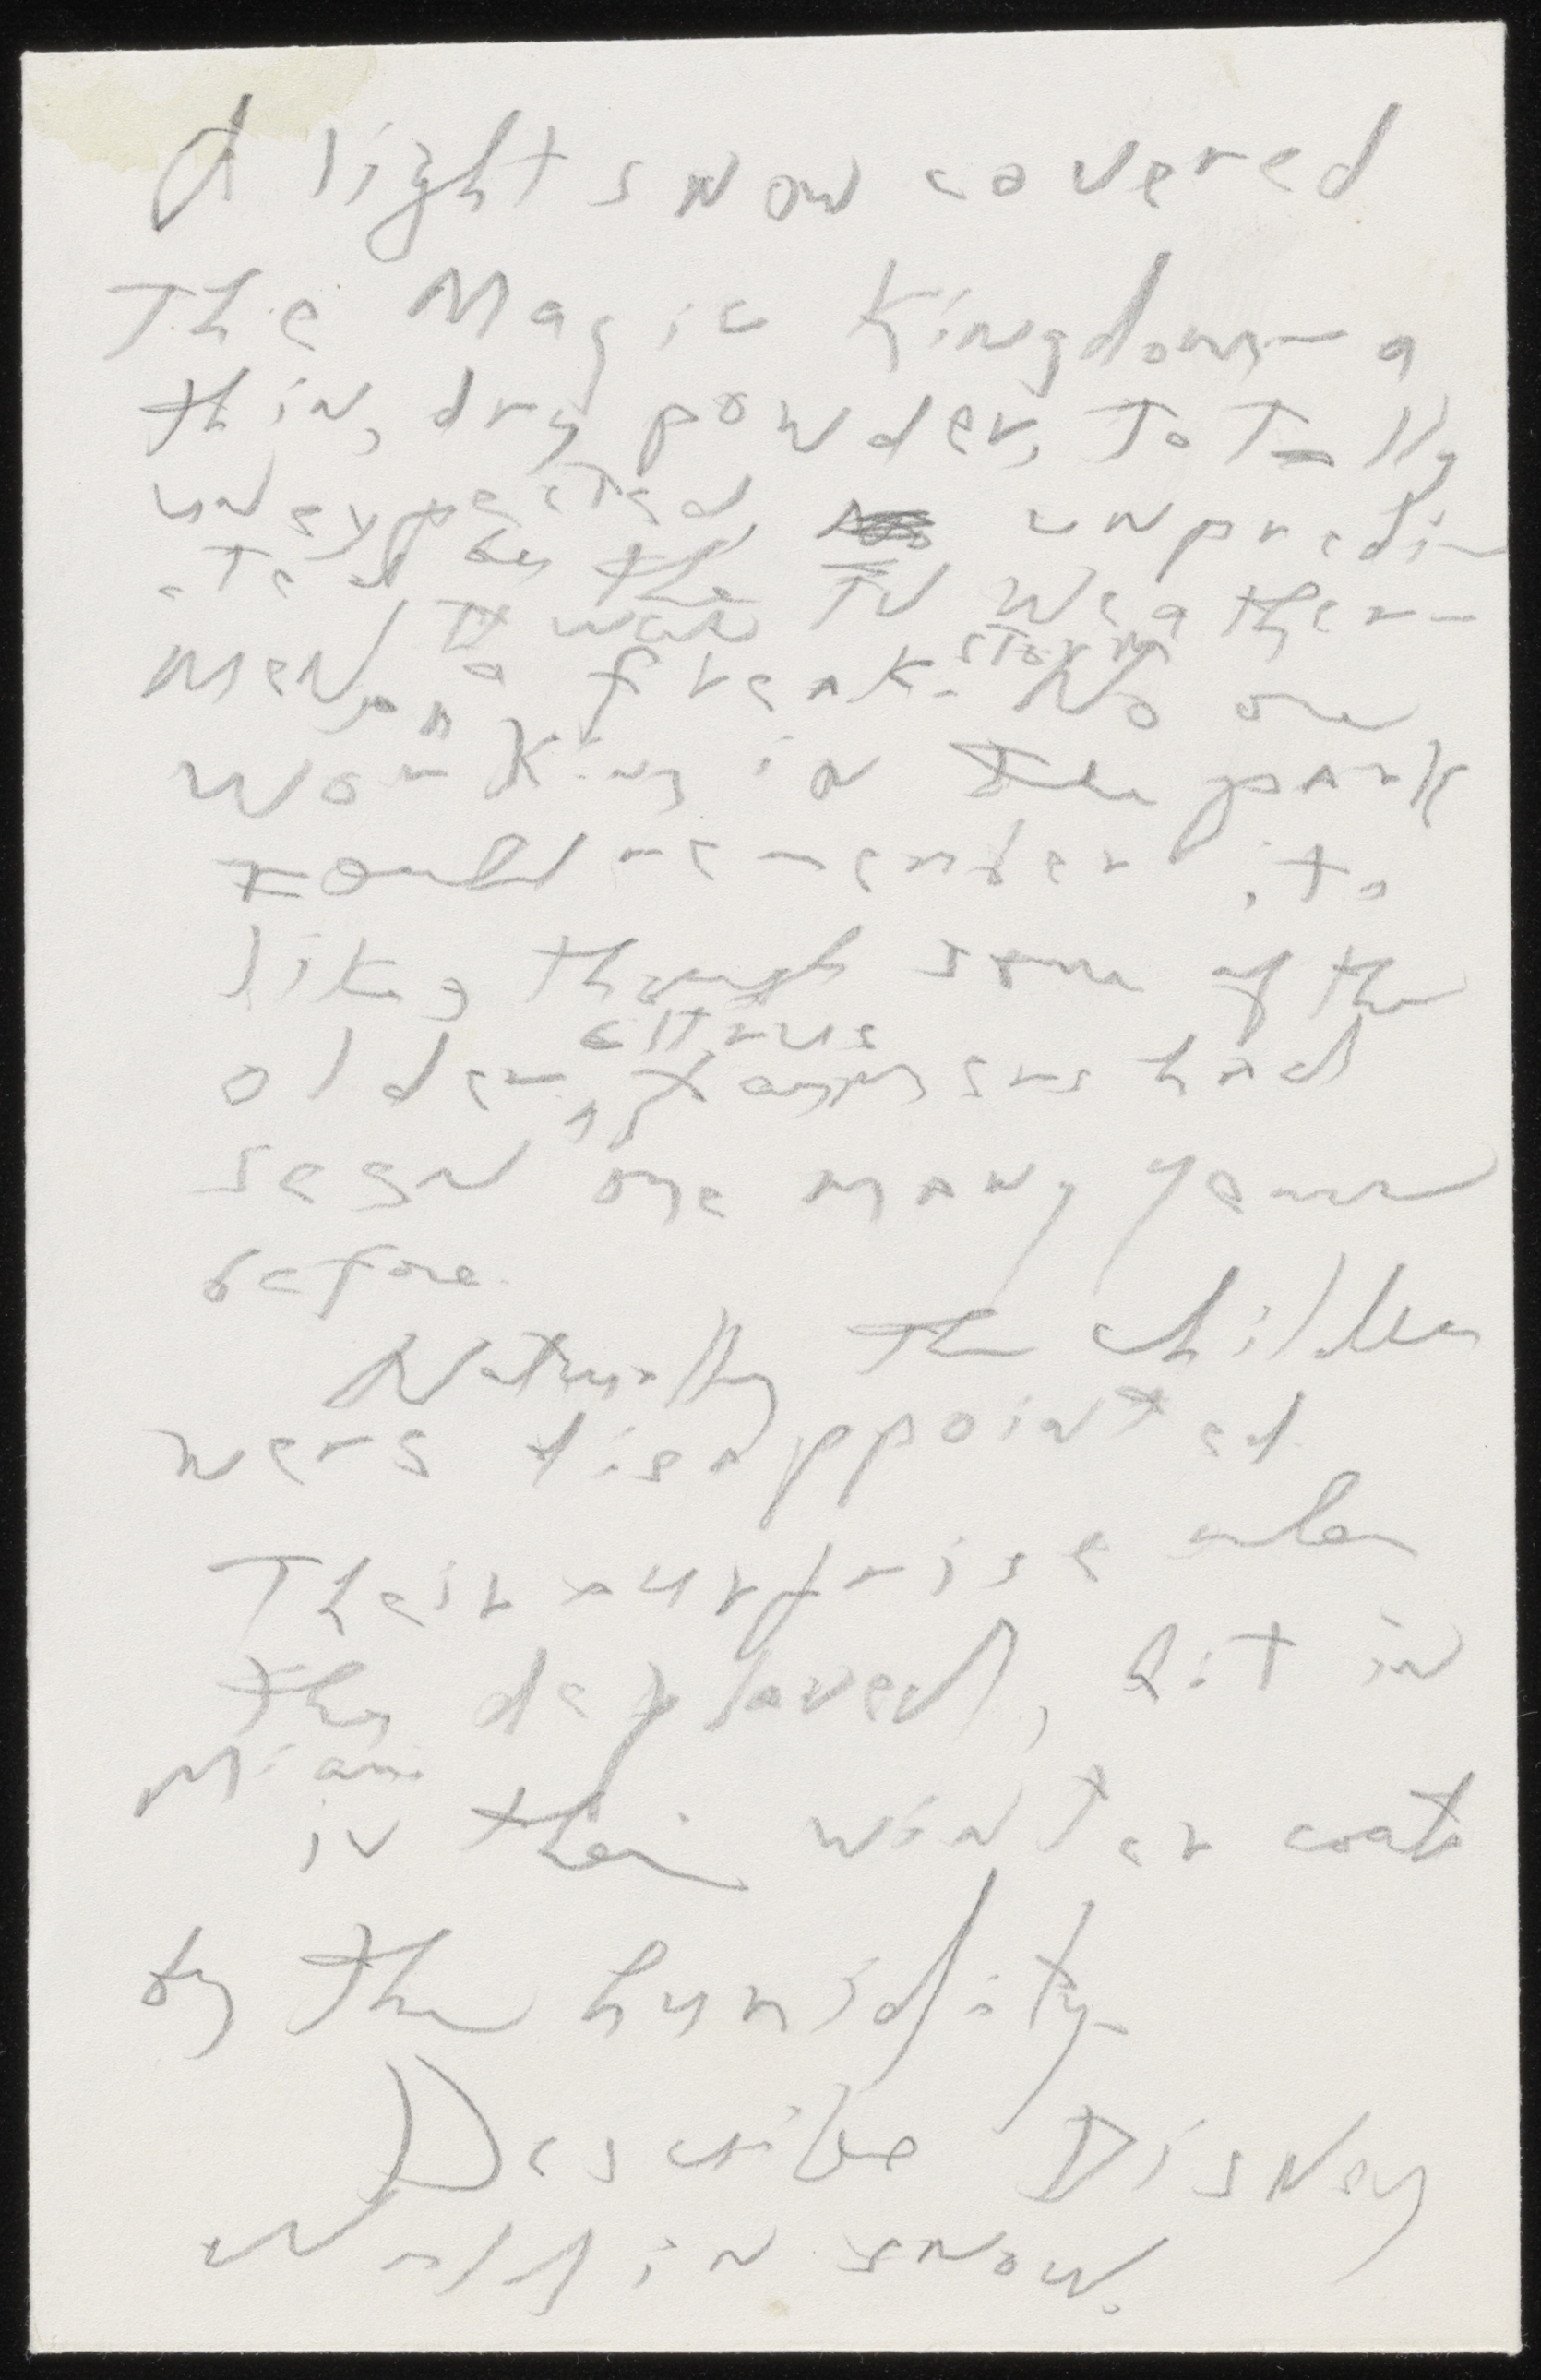 A light snow covered
The Magic Kingdom — a
thin, dry powder, Totally
unexpected, unpredic
cted by the TV weather-
men, It was
a freak storm. No one
working in the park
could remember its
like, though some of the
older citrus farmers had
seen one many years
before.
Naturally the children
were disappointed
Their surprise when
they deplaned, hit in
Miami
in their winter coats
by the humidity
Describe Disney
World in snow.